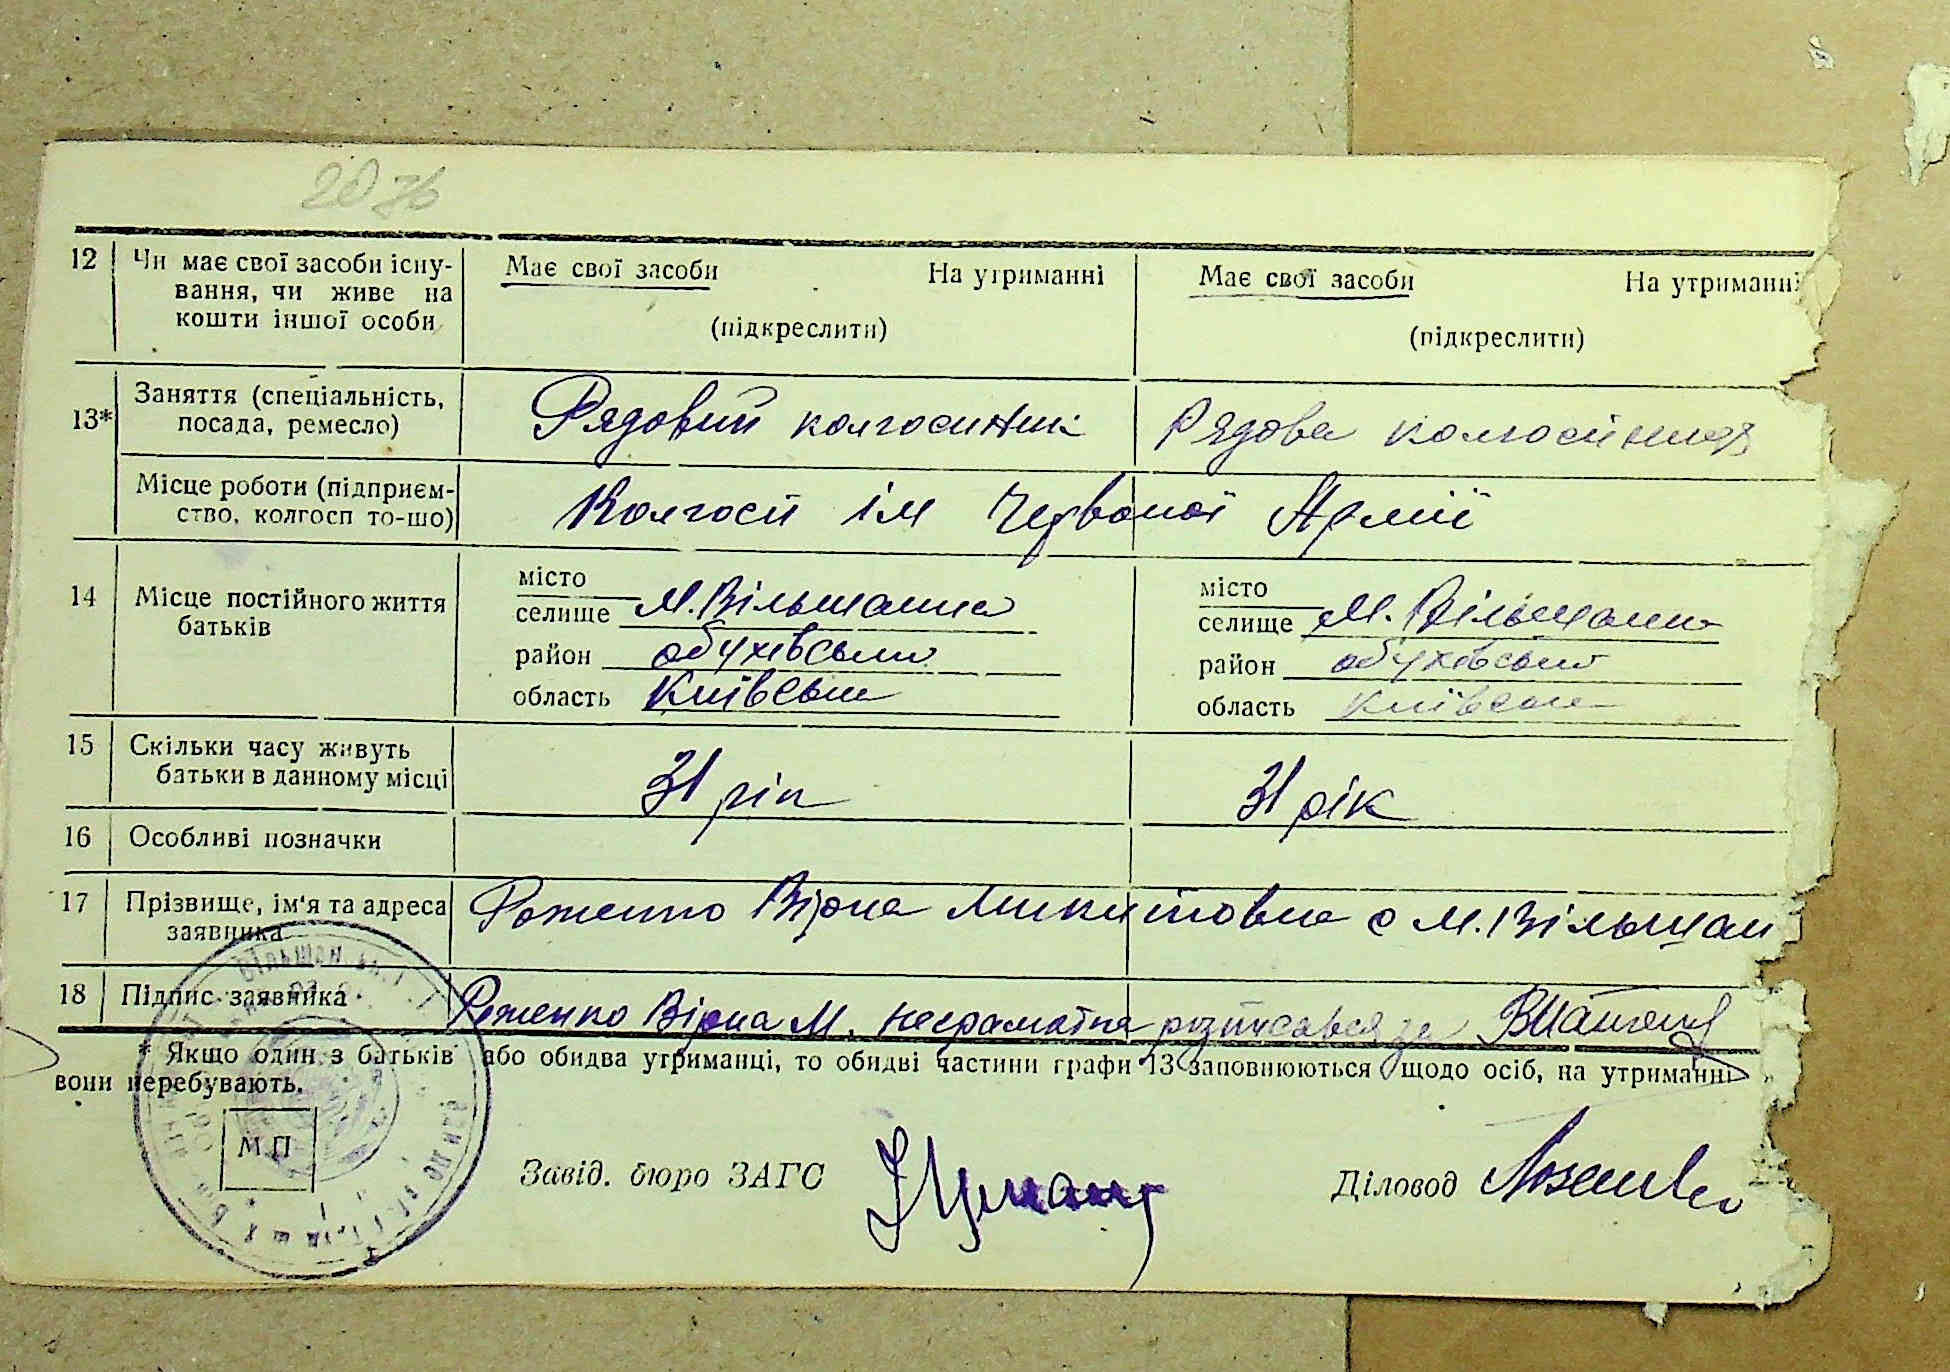 12 Чи має свої засоби існу-
вання, чи живе на
кошти іншої особи
Має свої засоби На утриманні
(підкреслити)
Має свої засоби На утриманні
(підкреслити)
13* Заняття (спеціальність,
посада, ремесло)
Рядовий колгоспник
Рядова колгоспниця
Місце роботи (підприєм-
ство, колгосп то-шо)
Колгосп ім Червоної Армії
14 Місце постійного життя
батьків
місто
селище М. Вільшанка
район Обухівський
область Київська
місто
селище М. Вільшанка
район Обухівський
область Київська
15 Скільки часу живуть
батьки в данному місці
31 рік
31 рік
16 Особливі позначки
17 Прізвище, ім'я та адреса
заявника
Роженко Вірка Микитовна с М. Вільшан
18 Підпис заявника
Роженко Вірка М. неграмотна розписався за
* Якщо один з батьків або обидва утриманці, то обидві частини графи 13 заповнюються щодо осіб, на утриманні
вони перебувають.
МП
Завід. бюро ЗАГС
Діловод